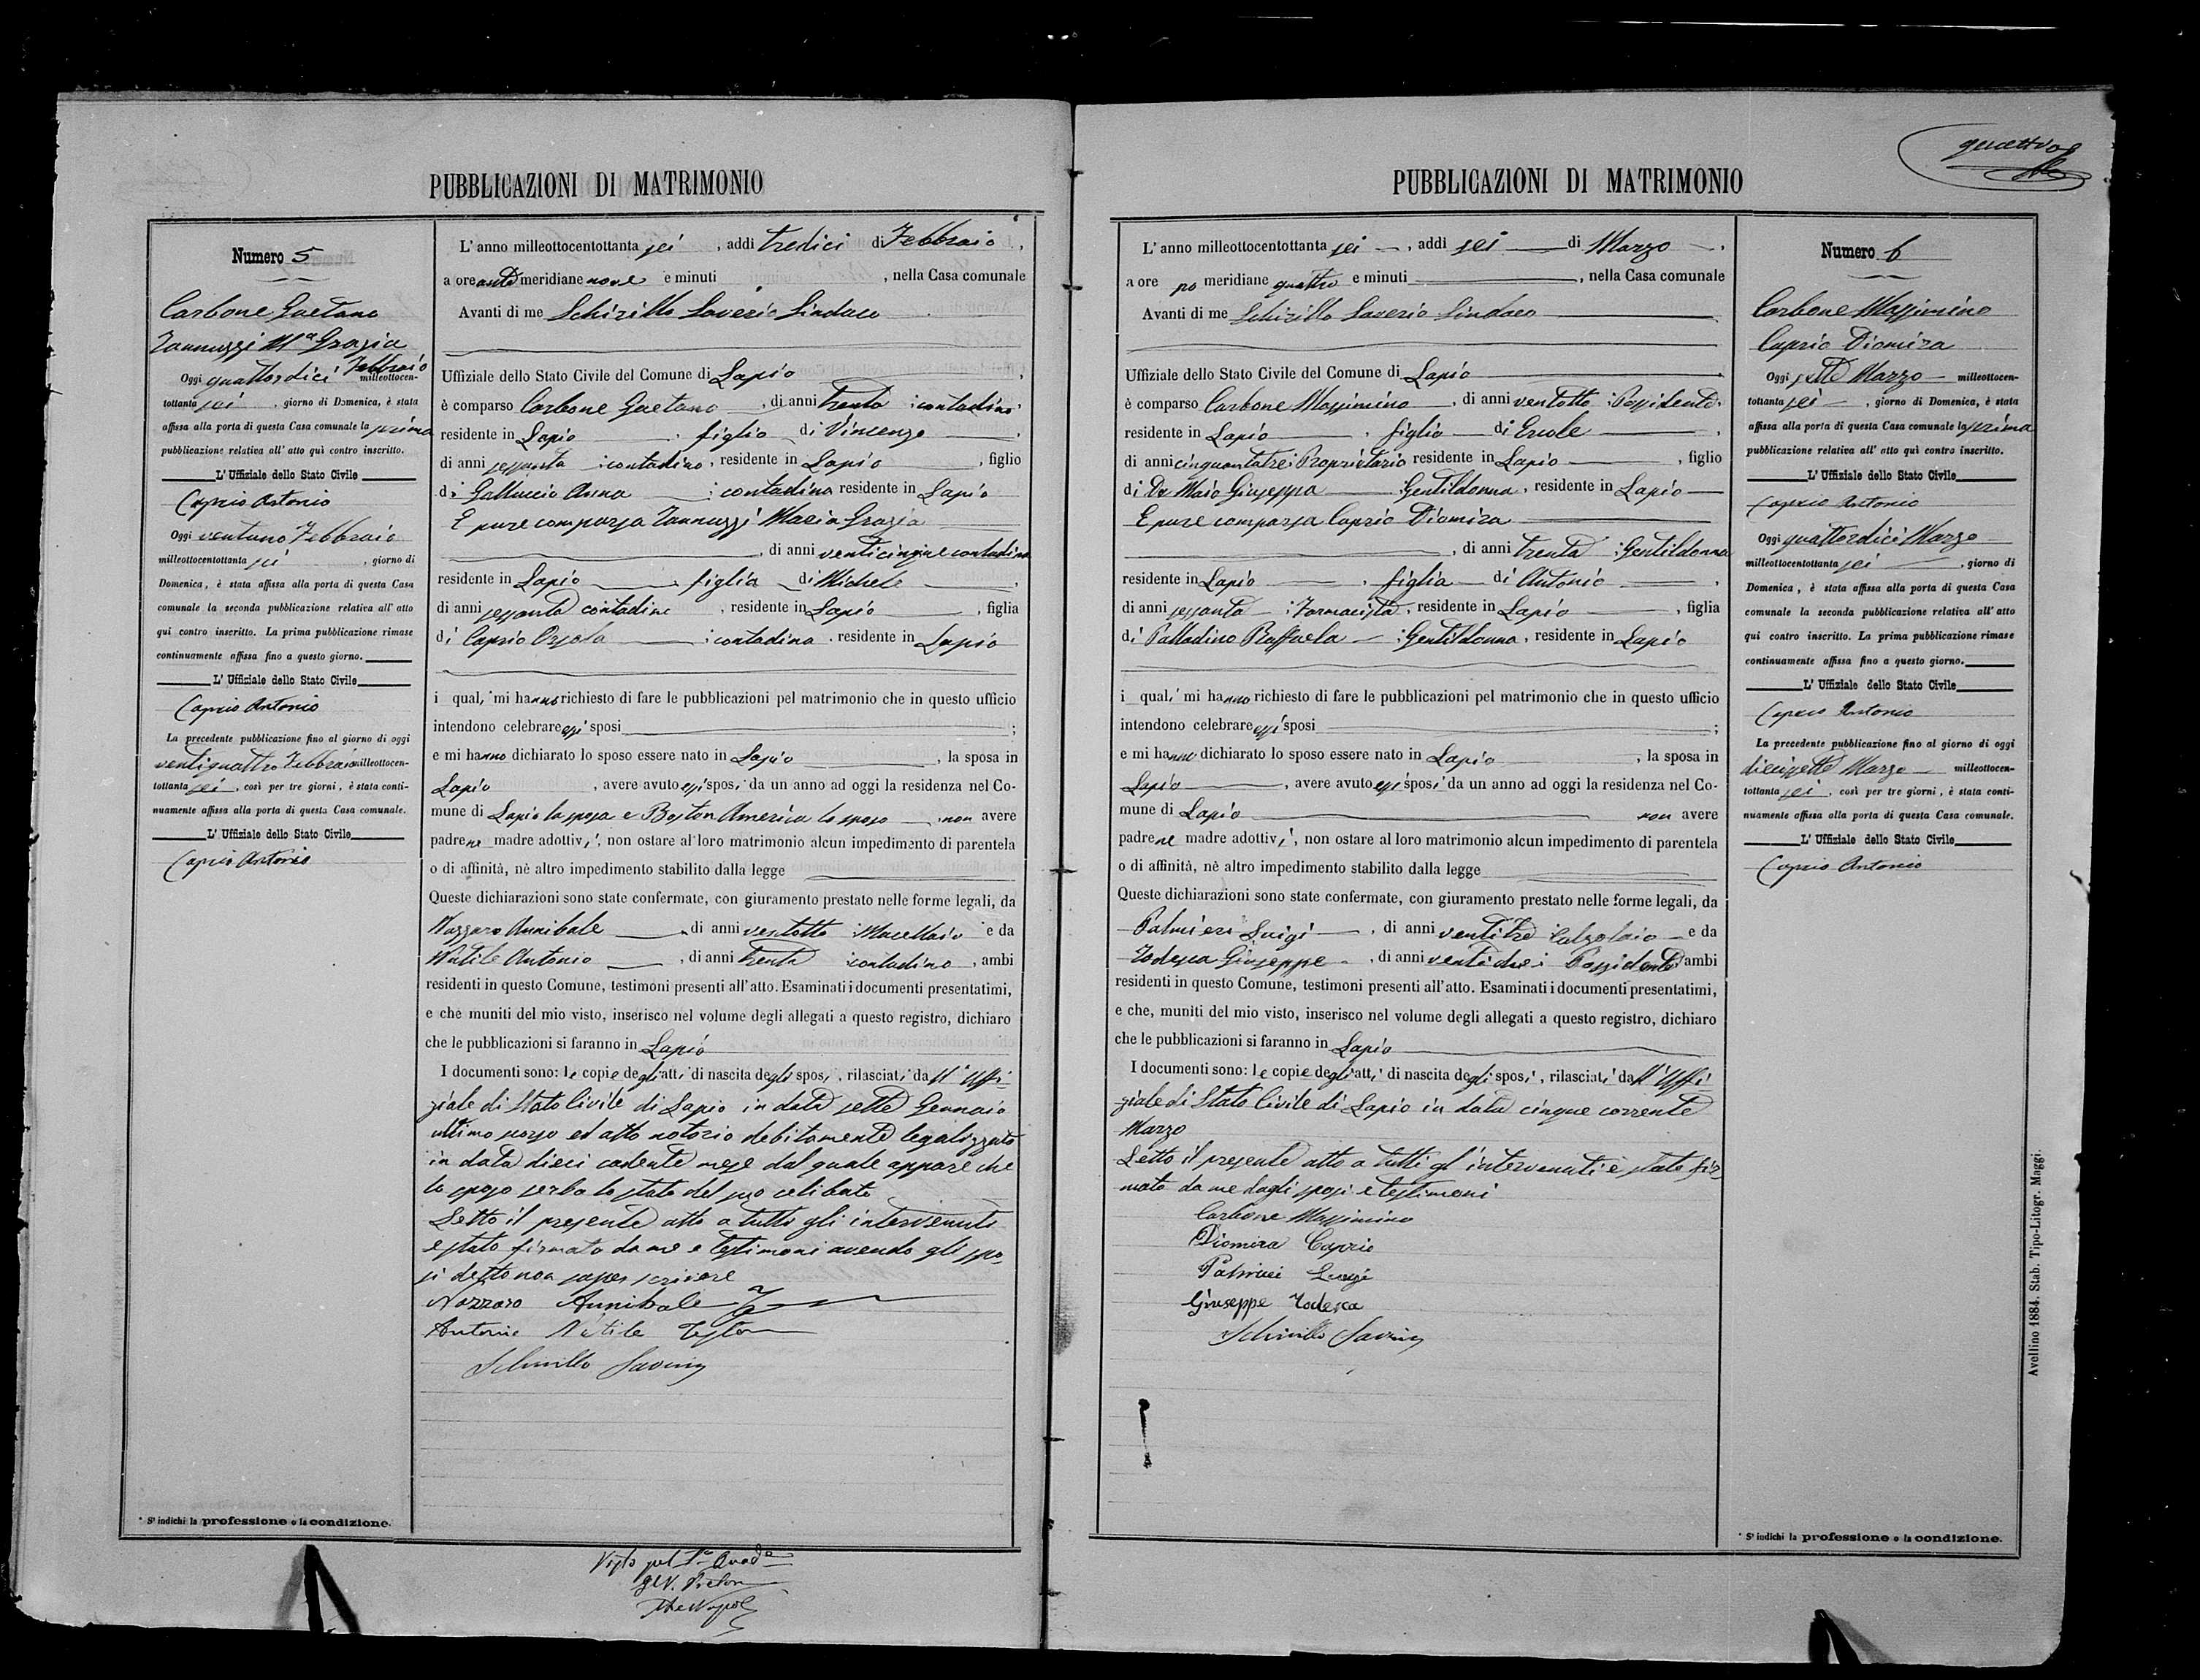 PUBBLICAZIONI DI MATRIMONIO
Numero 5
Carbone Gaetano
Iannuzzi Ma Grazia
Oggi quattordici Febbraio milleottocen-
tottanta sei, giorno di Domenica, è stata
affissa alla porta di questa Casa comunale la prima
pubblicazione relativa all' atto quì contro inscritto.
L' Uffiziale dello Stato Civile
Caprio Antonio
Oggi ventuno Febbraio
milleottocentottanta sei, giorno di
Domenica, è stata affissa alla porta di questa Casa
comunale la seconda pubblicazione relativa all' atto
qui contro inscritto. La prima pubblicazione rimase
continuamente affissa fino a questo giorno.
L' Uffiziale dello Stato Civile
Caprio Antonio
La precedente pubblicazione fino al giorno di oggi
ventiquattro Febbraio milleottocen-
tottanta sei, così per tre giorni, è stata conti-
nuamente affissa alla porta di questa Casa comunale.
L' Uffiziale dello Stato Civile
Caprio Antonio
* Si indichi la professione o la condizione.
L' anno milleottocentottanta sei, addi tredici di Febbraio,
a ore ante meridiane nove e minuti , nella Casa comunale
Avanti di me Schirillo Saverio Sindaco
Uffiziale dello Stato Civile del Comune di Lapio,
è comparso Carbone Gaetano, di anni trenta contadino
residente in Lapio, figlio di Vincenzo,
di anni sessanta contadino, residente in Lapio, figlio
di Galluccio Anna contadina residente in Lapio
E pure comparsa Iannuzzi Maria Grazia
, di anni venticinque contadina
residente in Lapio, figlia di Michele,
di anni sessanta contadino, residente in Lapio, figlia
di Caprio Orsola contadina, residente in Lapio
i quali mi hanno richiesto di fare le pubblicazioni pel matrimonio che in questo ufficio
intendono celebrare essi sposi ;
e mi hanno dichiarato lo sposo essere nato in Lapio, la sposa in
Lapio, avere avuto essi sposi da un anno ad oggi la residenza nel Co-
mune di Lapio la sposa e Boston America lo sposo non avere
padre ne madre adottivi, non ostare al loro matrimonio alcun impedimento di parentela
o di affinità, nè altro impedimento stabilito dalla legge
Queste dichiarazioni sono state confermate, con giuramento prestato nelle forme legali, da
Nazzaro Annibale, di anni ventotto Macellaio e da
Natile Antonio, di anni trenta contadino, ambi
residenti in questo Comune, testimoni presenti all' atto. Esaminati i documenti presentatimi,
e che muniti del mio visto, inserisco nel volume degli allegati a questo registro, dichiaro
che le pubblicazioni si faranno in Lapio
I documenti sono: le copie degli atti di nascita degli sposi, rilasciati dall' Uffi-
ziale di Stato Civile di Lapio in data sette Gennaio
ultimo scorso ed atto notorio debitamente legalizzato
in data dieci cadente mese dal quale appare che
lo sposo serba lo stato del suo celibato
Letto il presente atto a tutti gli intervenuti
e stato firmato da me e testimoni avendo gli spo-
si detto non saper scrivere
Nazzaro Annibale
Antonio Natile
Schirillo Saverio
Visto pel
PUBBLICAZIONI DI MATRIMONIO
quattro
L' anno milleottocentottanta sei, addi sei di Marzo,
a ore po meridiane quattro e minuti , nella Casa comunale
Avanti di me Schirillo Saverio Sindaco
Uffiziale dello Stato Civile del Comune di Lapio
è comparso Carbone Massimino, di anni ventotto Possidente
residente in Lapio, figlio di Ercole,
di anni cinquantatre Proprietario residente in Lapio, figlio
di De Maio Giuseppa Gentildonna, residente in Lapio
E pure comparsa Caprio Diomira
, di anni trenta Gentildonna
residente in Lapio, figlia di Antonio,
di anni sessanta Farmacista, residente in Lapio, figlia
di Palladino Raffaela Gentildonna, residente in Lapio
i quali mi hanno richiesto di fare le pubblicazioni pel matrimonio che in questo ufficio
intendono celebrare essi sposi ;
e mi hanno dichiarato lo sposo essere nato in Lapio, la sposa in
Lapio, avere avuto essi sposi da un anno ad oggi la residenza nel Co-
mune di Lapio non avere
padre ne madre adottivi, non ostare al loro matrimonio alcun impedimento di parentela
o di affinità, nè altro impedimento stabilito dalla legge
Queste dichiarazioni sono state confermate, con giuramento prestato nelle forme legali, da
Palmieri Luigi, di anni ventitre Calzolaio e da
Todesca Giuseppe, di anni ventidue Possidente ambi
residenti in questo Comune, testimoni presenti all' atto. Esaminati i documenti presentatimi,
e che, muniti del mio visto, inserisco nel volume degli allegati a questo registro, dichiaro
che le pubblicazioni si faranno in Lapio
I documenti sono: le copie degli atti di nascita degli sposi, rilasciati dall' Uffi-
ziale di Stato Civile di Lapio in data cinque corrente
Marzo
Letto il presente atto a tutti gl' intervenuti è stato fir-
mato da me dagli sposi e testimoni
Carbone Massimino
Diomira Caprio
Palmieri Luigi
Giuseppe Todesca
Schirillo Saverio
Numero 6
Carbone Massimino
Caprio Diomira
Oggi sette Marzo milleottocen-
tottanta sei, giorno di Domenica, è stata
affissa alla porta di questa Casa comunale la prima
pubblicazione relativa all' atto quì contro inscritto.
L' Uffiziale dello Stato Civile
Caprio Antonio
Oggi quattordici Marzo
milleottocentottanta sei, giorno di
Domenica, è stata affissa alla porta di questa Casa
comunale la seconda pubblicazione relativa all' atto
qui contro inscritto. La prima pubblicazione rimase
continuamente affissa fino a questo giorno.
L' Uffiziale dello Stato Civile
Caprio Antonio
La precedente pubblicazione fino al giorno di oggi
diecisette Marzo milleottocen-
tottanta sei, così per tre giorni, è stata conti-
nuamente affissa alla porta di questa Casa comunale.
L' Uffiziale dello Stato Civile
Caprio Antonio
* Si indichi la professione o la condizione.
Avellino 1884. Stab. Tipo-Litogr. Maggi.